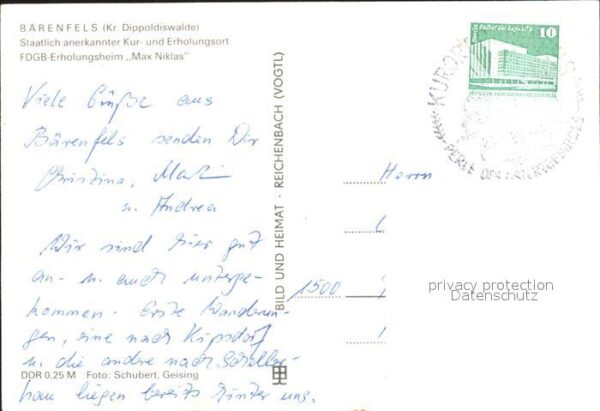 BÄRENFELS (Kr. Dippoldiswalde)
Staatlich anerkannter Kur- und Erholungsort
FDGB-Erholungsheim „Max Niklas"
Viele Grüße aus
Bärenfels senden Dir
Christina,
u. Andrea
Wir sind hier gut
an- u. auch unterge-
kommen. Erste Wanderun-
gen, eine nach Kipsdorf
u. die andre nach Scheller-
hau liegen bereits hinter uns.
DDR 0,25 M Foto: Schubert, Geising
BILD UND HEIMAT · REICHENBACH (VOGTL)
10
KURORT
PERLE DES OSTERZGEBIRGES
Herrn
1500
privacy protection
Datenschutz